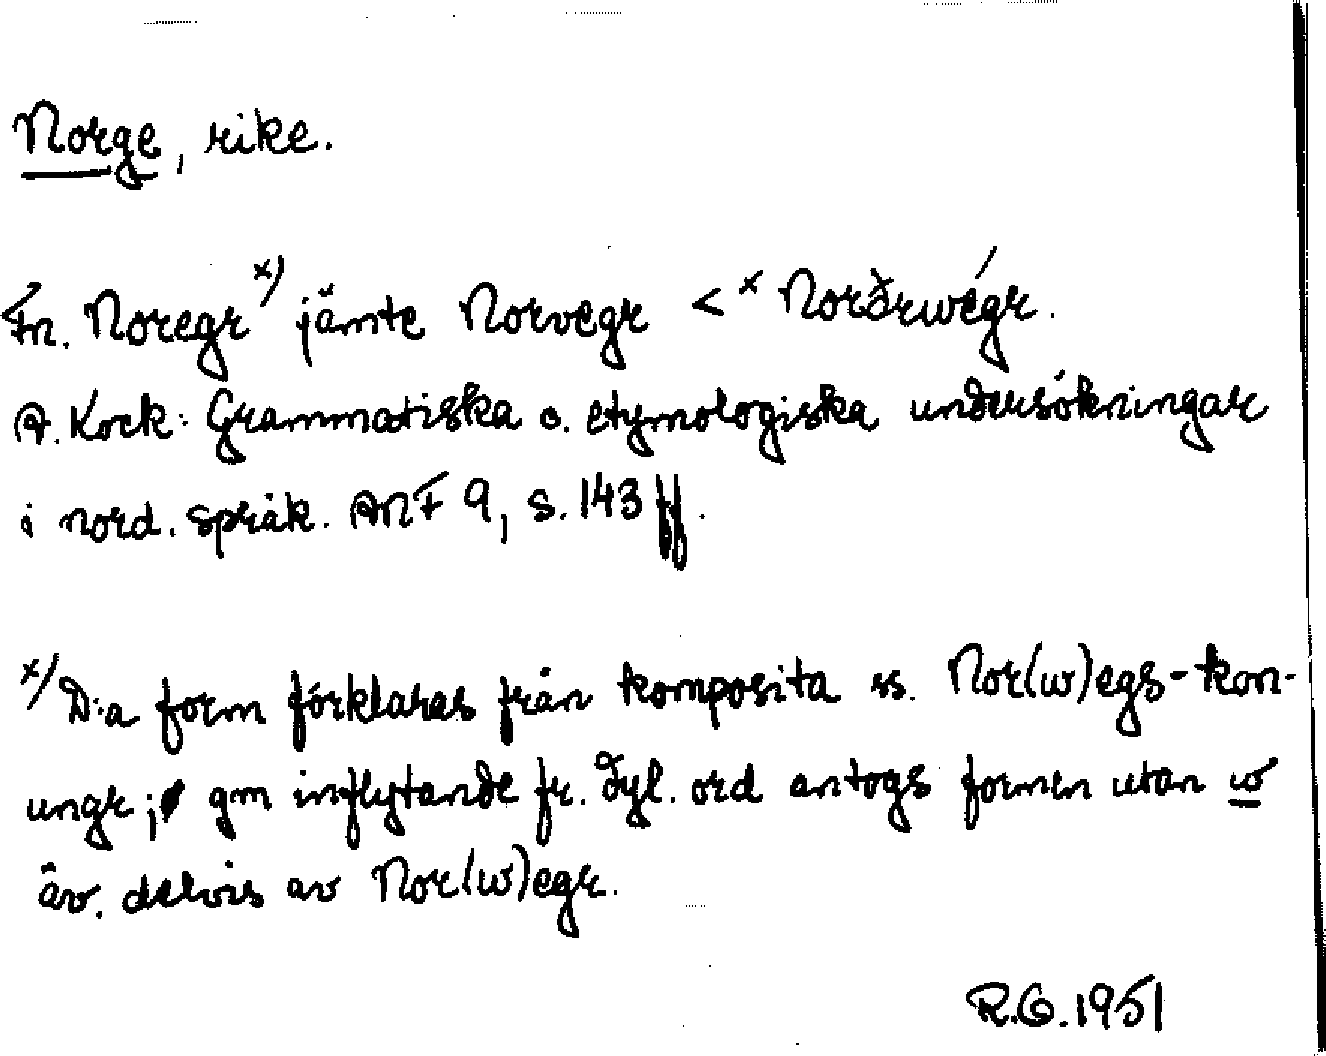 Norge, rike.
Fn. Noregr x) jämte Norvegr < x Norðrwégr.
A. Kock: Grammatiska o. etymologiska undersökningar
i nord. språk. ANF 9, s. 143 ff.
x) D:a form förklaras från komposita ss. Nor(w)egs-kon-
ungr; gm inflytande fr. dyl. ord antogs formen utan w
äv. delvis av Nor(w)egr.
R.G. 1951